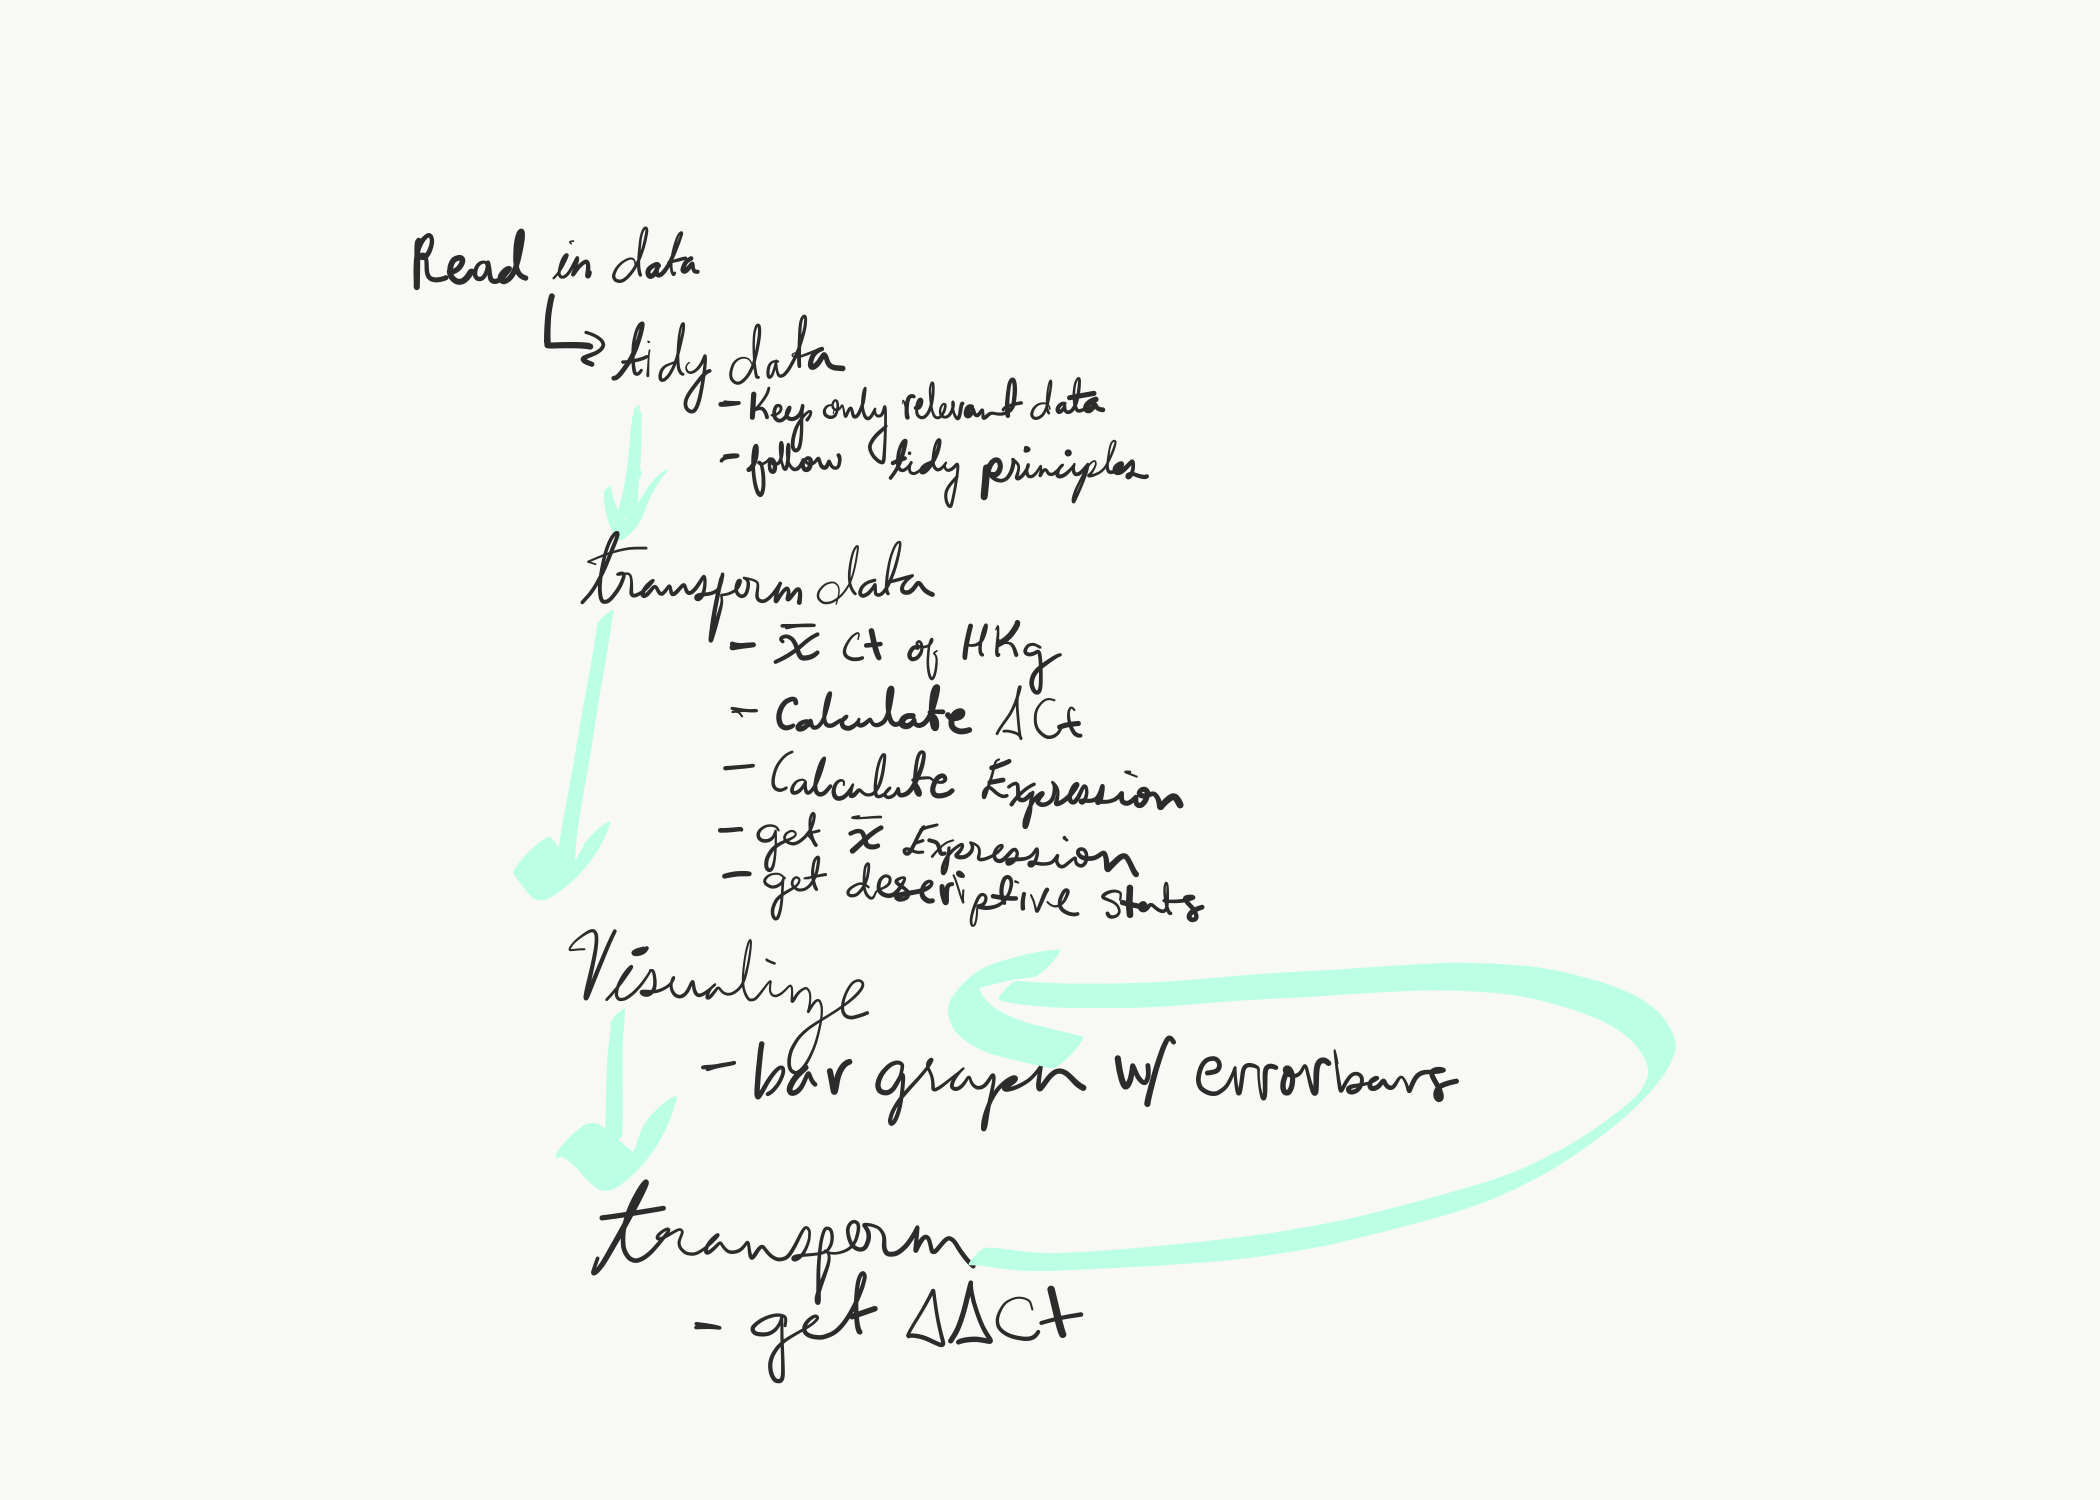 Read in data
tidy data
- Key only relevant data
- follow tidy priniples
transform data
- x̄ Ct of HKg
- Calculate ΔCt
- Calculate Expression
- get x̄ Expression
- get descriptive stats
Visualize
- bar graph w/ errorbars
transform
- get ΔΔCt